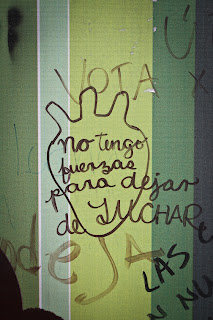 VOTA X
no tengo
fuerzas
para dejar
de LUCHAR
deja
LAS